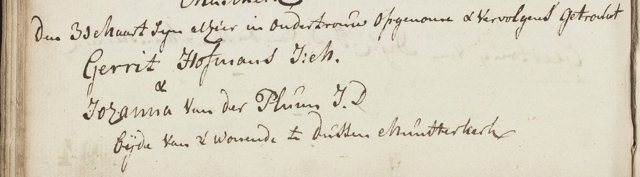 Den 3de Maert Syn alhier in Ondertrouw Opgenomen & Vervolgens Getrouwt
Gerrit Hofmans J:M.
&
Johanna Van der Pluim J.D
beyde Van & Wonende te Dussen Munsterkerk